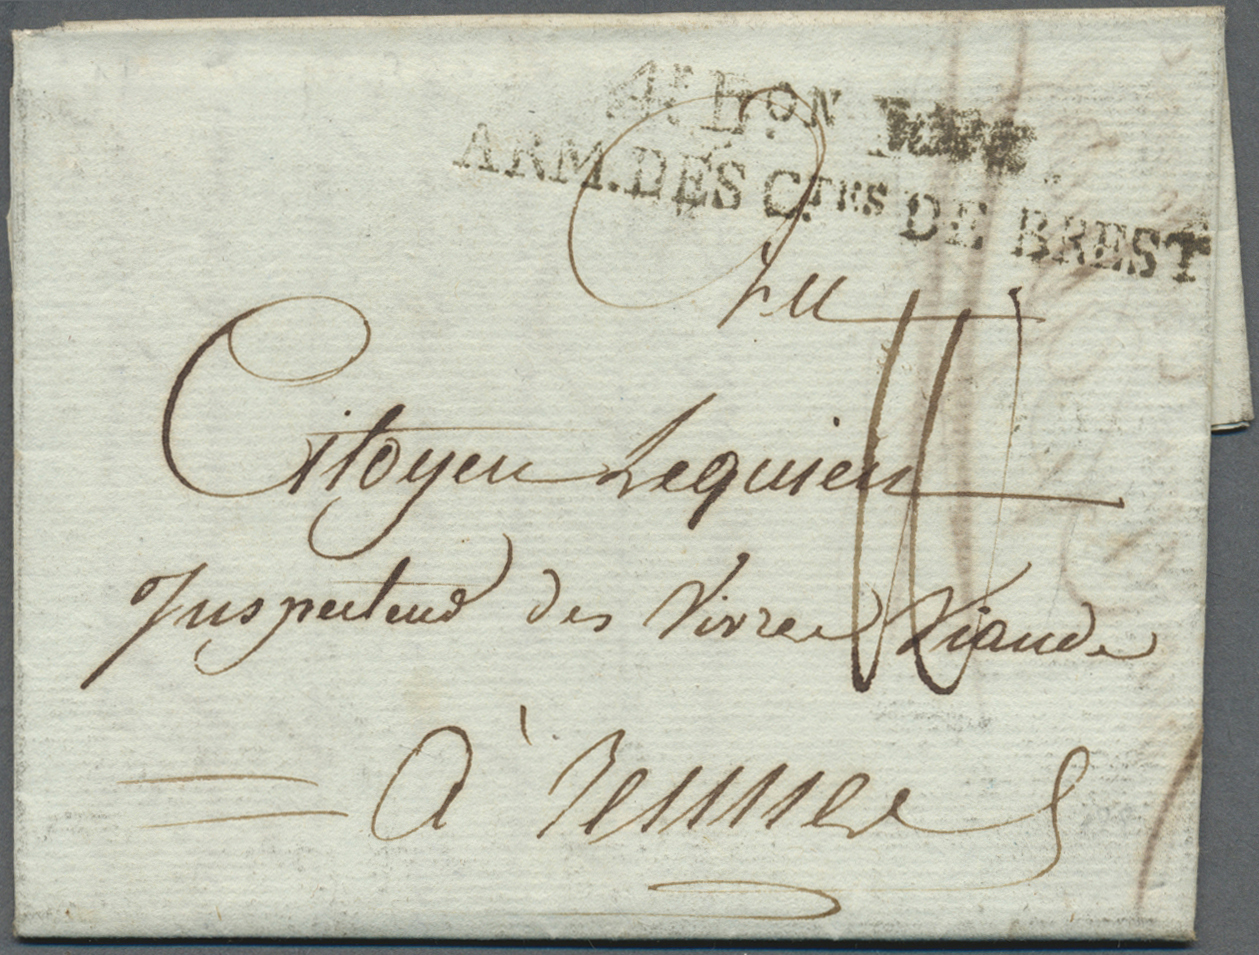 4E. DON
ARM. DES CTRES DE BREST
Au
Citoyen Lequien
Inspecteur des Vivres Viande
à Rennes